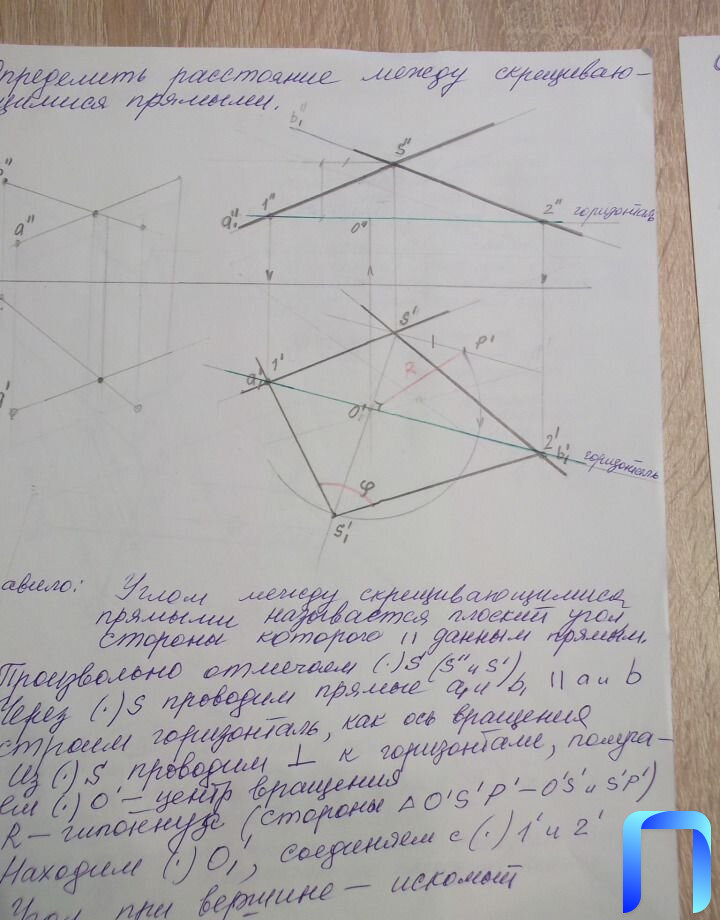 Определить расстояние между скрещиваю-
щимися прямыми.
b₁"
S"
a"
a₁" 1"
0"
2" горизонталь
S'
P'
R
a₁' 1'
O'
2' b₁' горизонталь
φ
S₁'
авило: Углом между скрещивающимися
прямыми называется плоский угол,
стороны которого || данным прямым.
Произвольно отмечаем (·) S (S" и S')
Через (·) S проводим прямые a₁ и b₁ || a и b
строим горизонталь, как ось вращения
Из (·) S проводим ⊥ к горизонтали, получа-
ем (·) O' – центр вращения
R – гипотенуза (стороны △ O'S'P' – O'S' и S'P')
Находим (·) O₁', соединяем с (·) 1' и 2'
Угол при вершине – искомый